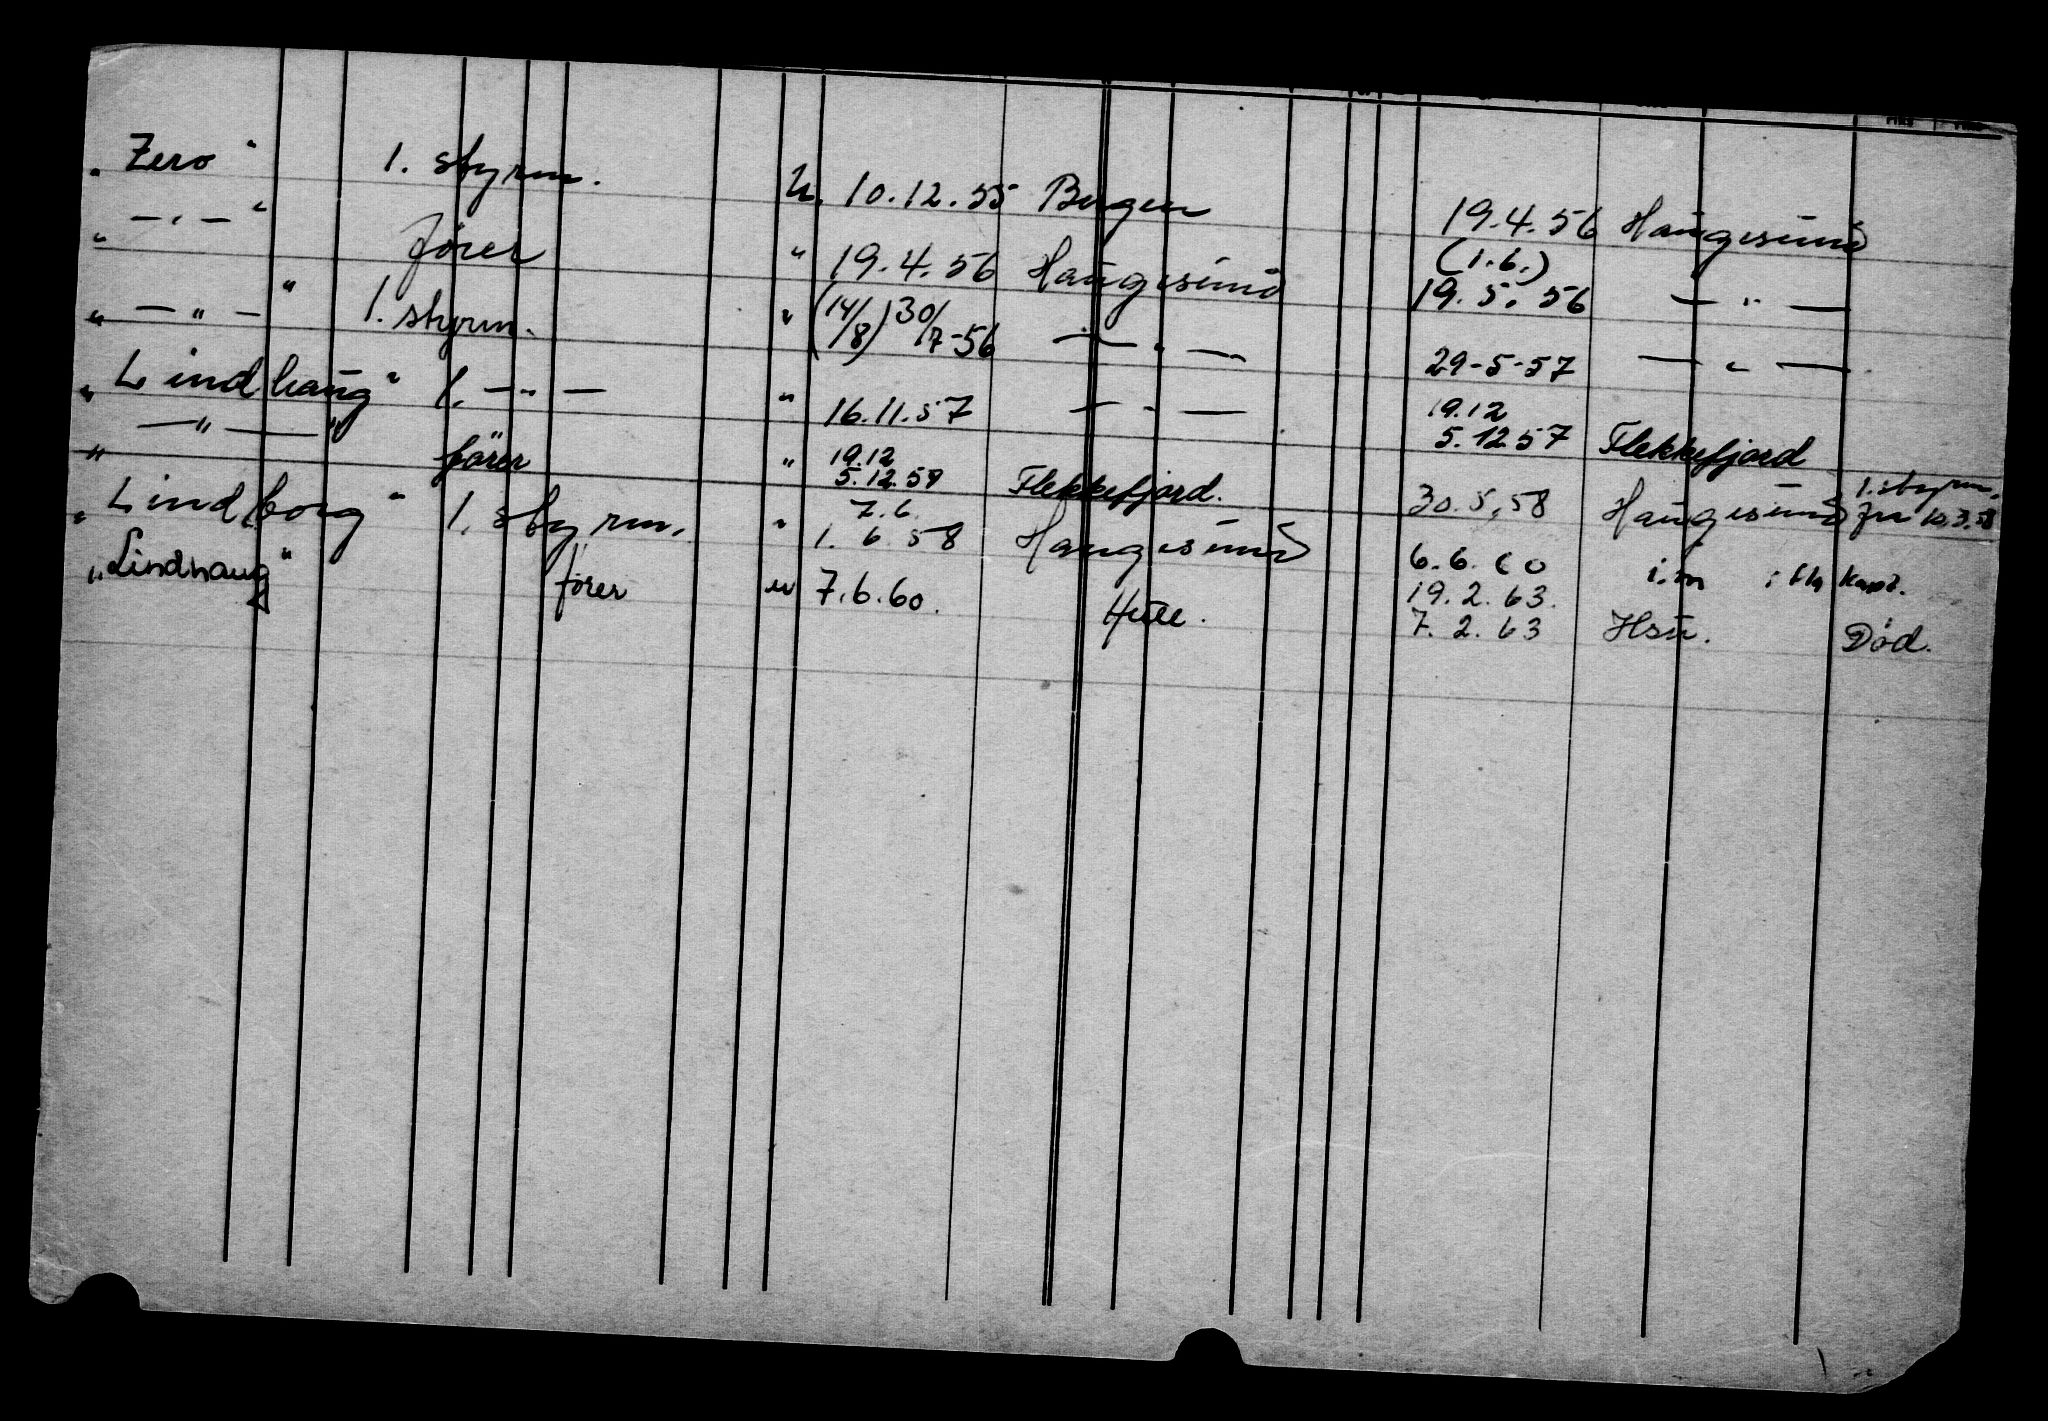 „Zero" 1. styrm. U. 10.12.55 Bergen 19.4.56 Haugesund
„—"—" fører " 19.4.56 Haugesund (1.6.) 19.5.56 —"—
„—"—" 1. styrm. " (14/8) 30/7-56 —"— 29-5-57 —"—
„Lindhaug" 1. —"— " 16.11.57 —"— 19.12 5.12.57 Flekkefjord
„—"—" fører " 19.12 5.12.57 Flekkefjord. 30.5.58 Haugesund 1. styrm. fra 10.3.58
„Lindborg" 1. styrm. " 7.6. 1.6.58 Haugesund 6.6.60 i.m
„Lindhaug" fører " 7.6.60. 19.2.63. 7.2.63 Hsu. Død.